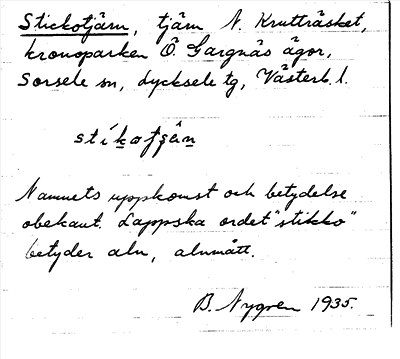 Stickotjärn, tjärn N. Krutträsket,
kronoparken Ö. Gargnäs ägor,
Sorsele sn, Lycksele tg, Västerb. l.
Namnets uppkomst och betydelse
obekant. Lappska ordet "stikko"
betyder aln, alnmått.
B. Nygren 1935.